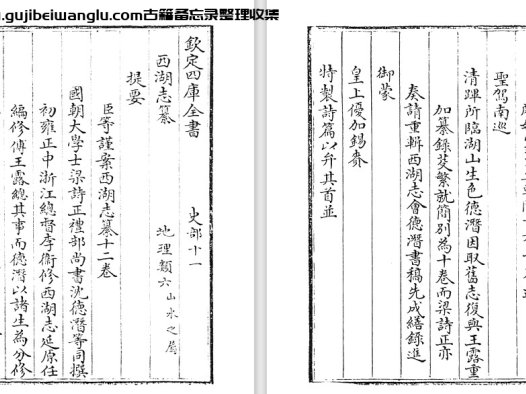 .gujibeiwanglu.com古籍备忘录整理收集
欽定四庫全書 史部十一
西湖志纂 地理類六 山水之屬
提要
臣等謹案西湖志纂十二卷
國朝大學士梁詩正禮部尚書沈德潛等同撰
初雍正中浙江總督李衞修西湖志延原任
編修傅王露總其事而德潛以諸生為分修
聖駕南巡
清蹕所臨湖山生色德潛因取舊志復與王露重
加纂錄芟繁就簡別為十卷而梁詩正亦
奏請重輯西湖志會德潛書稿先成繕錄進
御蒙
皇上優加錫賚
特製詩篇以弁其首並